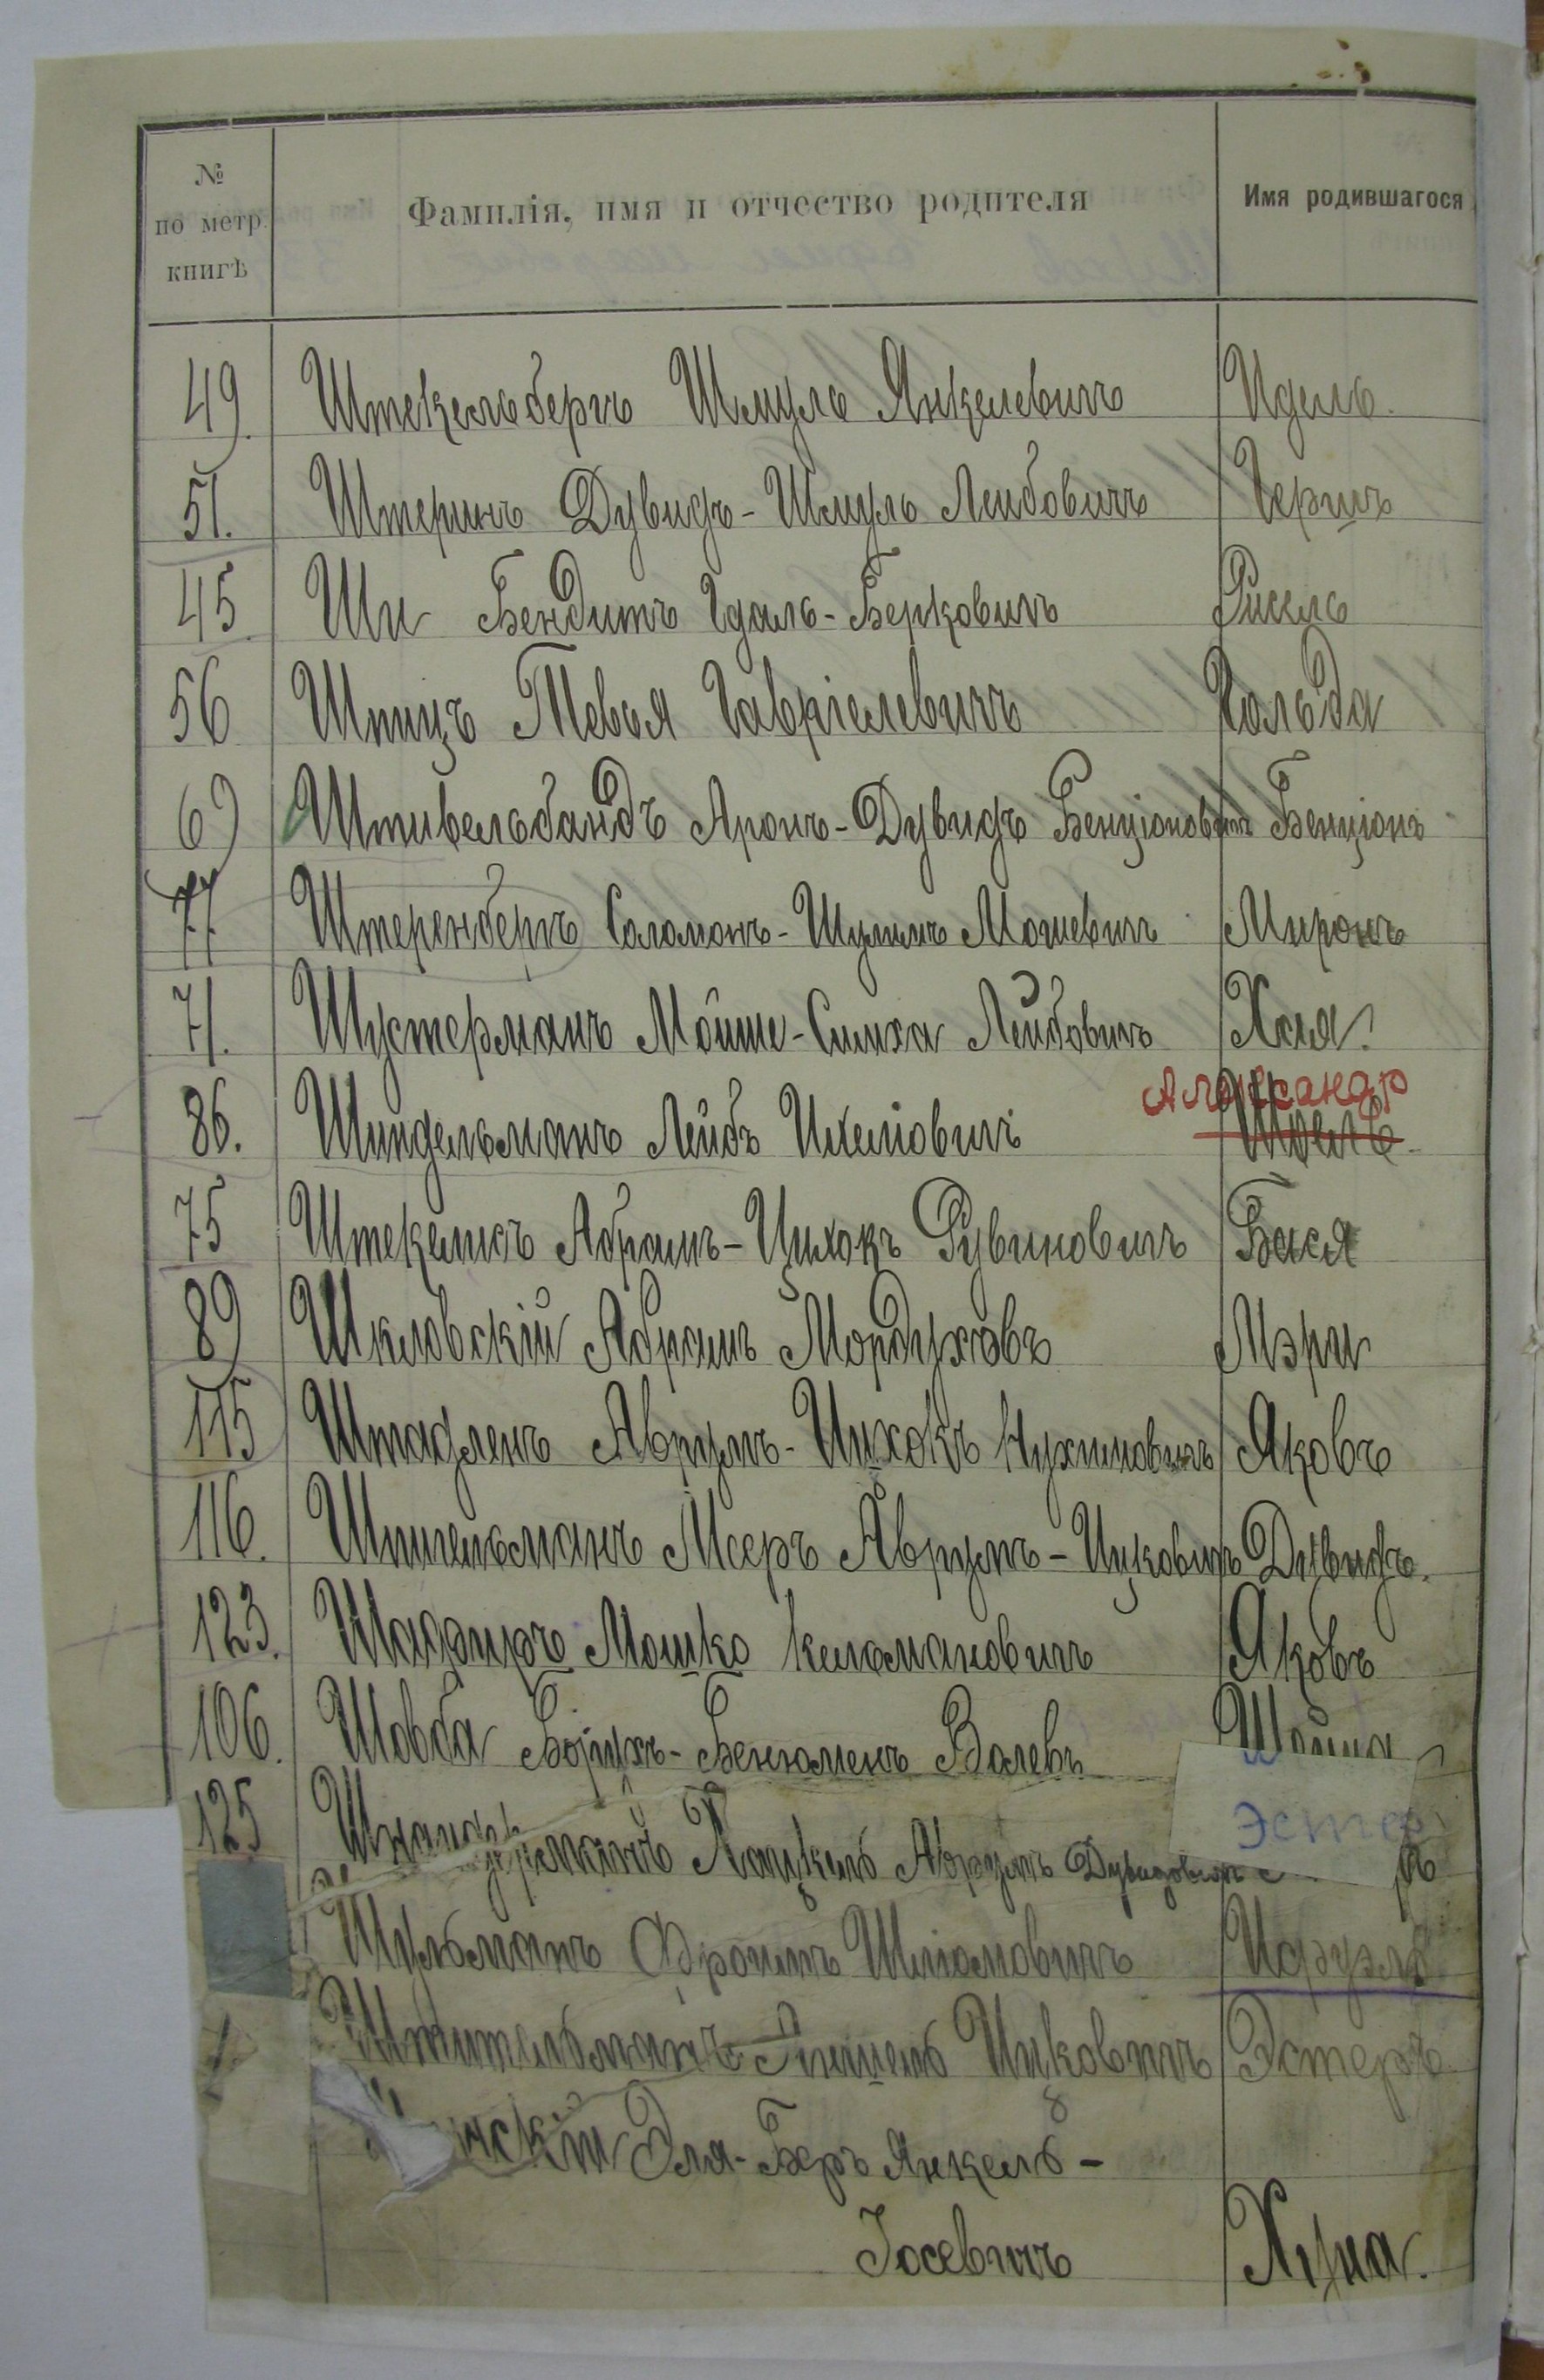 № по метр. книгѣ Фамилія, имя и отчество родителя Имя родившагося
49. Штекельбергъ Шмуль Янкелевичъ Идель.
51. Штеринъ Дувидъ-Шмуль Лейбовичъ Гершъ
45. Ши Бендитъ Гдаль-Берковичъ Рисель
56 Шпицъ Тевья Гавріелевичъ Гольда
69 Штивельбандъ Аронъ-Дувидъ Бенціоновичъ Бенціонъ
77 Штеренбергъ Соломонъ-Шулимъ Мошевичъ Миронъ
71. Шустерманъ Мойше-Симха Лейбовичъ Хая.
Александр
86. Шиндельманъ Лейбъ Ихелювичъ
75 Штекелисъ Абрамъ-Ицхокъ Рувиновичъ Бася
89 Шкловскій Абрамъ Мордуховъ Мэри
115 Штадленъ Аврумъ-Ицхокъ Нухимовичъ Яковъ
116. Шпигельманъ Мееръ Аврумъ-Ицковичъ Дувидъ.
123. Шафиръ Мошко Кельмановичъ Яковъ
106. Шовба Борухъ-Бенюменъ Волевъ Шейна
125 Хацкель Аврумъ Дувидовичъ Эстер
Шульманъ Фроимъ Шліомовичъ
Штительманъ Гершель Ицковичъ Эстеръ
нскій Эля-Беръ Янкель-
Іосевичъ